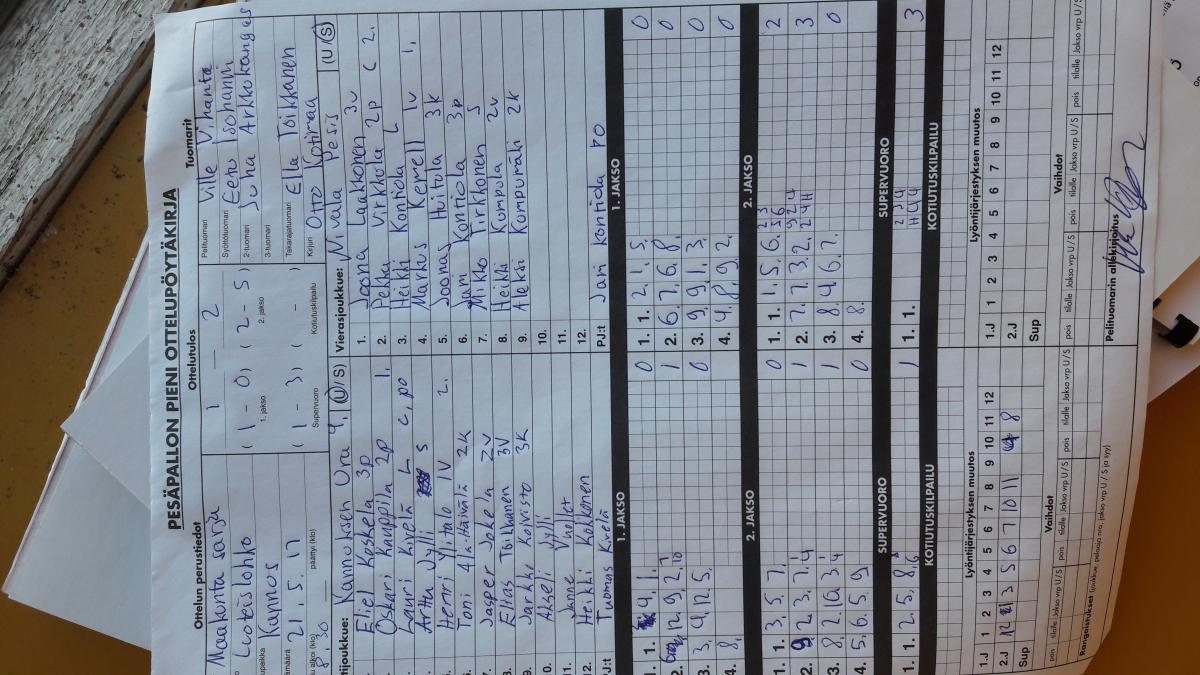 PESÄPALLON PIENI OTTELUPÖYTÄKIRJA
Ottelun perustiedot
Ottelutulos
Tuomarit
Maakunta sarja
Luoteislohko
Kannus
21.5.17
8.30
päättyi (klo)
1 – 2
(1 – 0, (2 – 5)
1. jakso
2. jakso
(1 – 3) ( – )
Supervuoro
Kotiutuskilpailu
Pelituomari Ville Vihanta
Syöttötuomari Eero Isohanni
2-tuomari Juha Arkkukangas
3-tuomari
Takarajatuomari Ella Toikkanen
Kirjuri Otto Kotimaa
tijoukkue: Kannuksen Ura 4, (U/S)
Eliel Koskela 3p
Oskari Kauppila 2p 1.
Lauri Kivelä L c, po
Arttu Jylli S
Henri Ylitalo 1V 2.
Toni Ala-Häivälä 2K
Jasper Jokela 2V
Elias Tölkkanen 3V
Jarkko Koivisto 3K
0. Akseli Jylli
11. Janne Vuollet
12. Heikki Kokkonen
PJ:t Tuomas Kivelä
Vierasjoukkue: Nivala Pesis (U/S)
1. Joona Laakkonen 3v
2. Pekka Virkkula 2p c 2.
3. Heikki Kontiola L
4. Markus Kemell 1v 1.
5. Joonas Huitula 3k
6. Jani Kontiola 3p
7. Mikko Tirkkonen S
8. Heikki Kumpula 2v
9. Aleksi Kumpumäki 2k
10.
11.
12.
PJ:t Jani Kontiola PO
1. JAKSO
1. JAKSO
1. 1. 4. 1. 0
2. 12. 9. 2. 7 10 1
3. 3. 4. 12. 5. 0
4. 8.
1. 1. 2. 1. 5. 0
2. 6. 7. 6. 8. 0
3. 9. 9. 1. 3. 0
4. 4. 8. 9. 2. 0
2. JAKSO
2. JAKSO
1. 1. 3. 5. 7. 0
2. 9 2. 3. 7. 4 1
3. 8. 2. 10. 3. 4 1
4. 5. 6. 5. 9 0
1. 1. 1. 5. 6. 2 3 5 6 2
2. 7. 7. 3. 2. 9 2 4 2 4 H 3
3. 8. 4. 6. 7. 0
4. 8.
SUPERVUORO
SUPERVUORO
1. 1. 2. 5. 8. 1
1. 1. 2 3 4 3
KOTIUTUSKILPAILU
KOTIUTUSKILPAILU
Lyöntijärjestyksen muutos
Lyöntijärjestyksen muutos
1.J 1 2 3 4 5 6 7 8 9 10 11 12
2.J 3 5 6 7 10 11 8
Sup
1.J 1 2 3 4 5 6 7 8 9 10 11 12
2.J
Sup
Vaihdot
Vaihdot
pois tilalle Jakso vrp U/S pois tilalle Jakso vrp U/S pois tilalle Jakso vrp U/S
pois tilalle Jakso vrp U/S pois tilalle Jakso vrp U/S
Rangaistukset (joukkue, pelaaja nro, jakso vrp / U / S ja syy)
Pelituomarin allekirjoitus